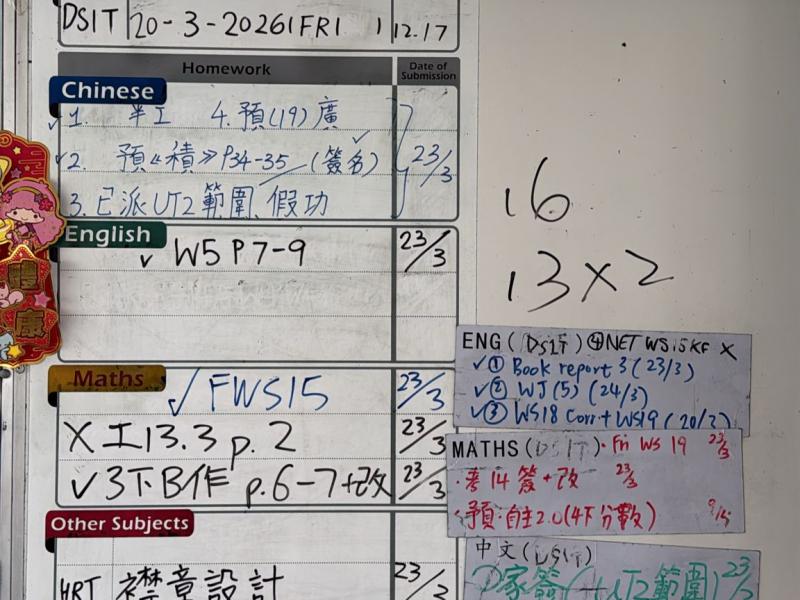 DSIT 20-3-2026 FRI 12.17
Homework Date of Submission
Chinese
✓1. 半工 4. 預(19)廣
✓2. 預《積》P34-35 (簽名) 23/3
3. 已派UT2範圍、假功
English
✓ W5 P7-9 23/3
Maths
✓ FWS15 23/3
X 工13.3 p.2 23/3
✓ 3下B作 p.6-7+改 23/3
Other Subjects
襟章設計 23/3
16
13×2
ENG (DSIT) ④NET WS15KF X
✓① Book report 3 (23/3)
✓② WJ(5) (24/3)
✓③ WS18 Corr + WS19
MATHS (DSIT) · Fri WS 19 23/3
· 考14簽+改 23/3
預:自主2.0(4下分數)
中文 (DSIT)
①家簽(+UT2範圍) 23/3